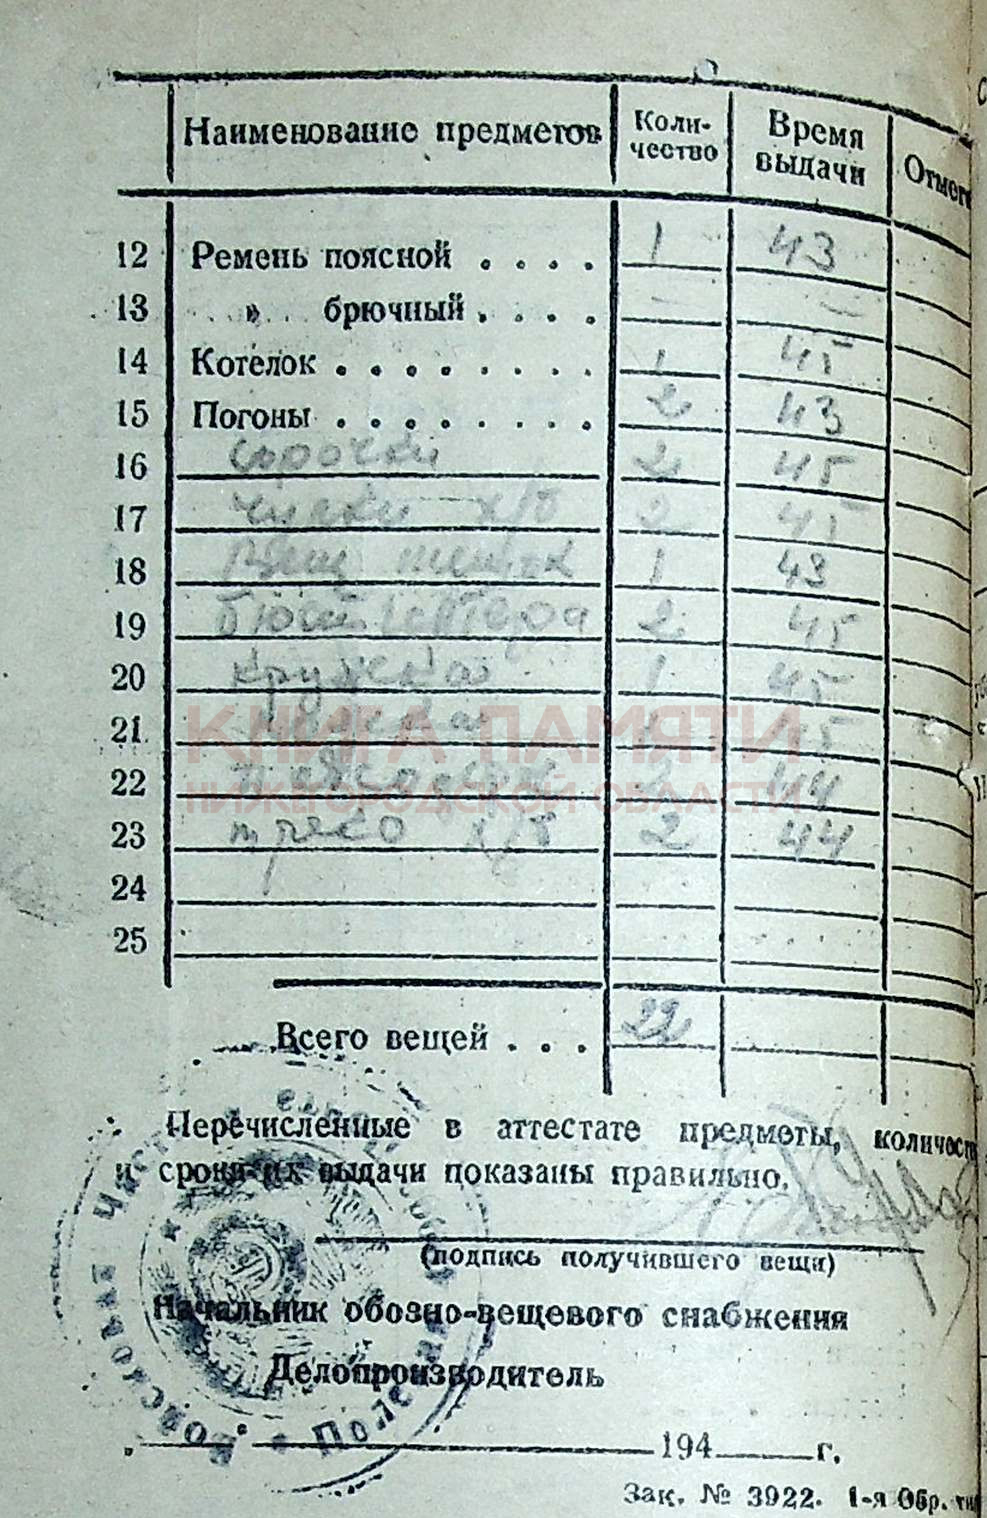 Наименование предметов Коли-чество Время выдачи Отмет
12 Ремень поясной . . . . 1 43
13 » брючный . . . . — —
14 Котелок . . . . . . . . 1 45
15 Погоны . . . . . . . . 2 43
16 сорочки 2 45
17 чулки х/б 2 45
18 Вещ мешок 1 43
19 бюстгалтера 2 45
20 кружка 1 45
21 45
22 44
23 трико х/б 2 44
24
25
Всего вещей . . . 22
КНИГА ПАМЯТИ
НИЖЕГОРОДСКОЙ ОБЛАСТИ
Перечисленные в аттестате предметы, количест
и сроки их выдачи показаны правильно.
(подпись получившего вещи)
Начальник обозно-вещевого снабжения
Делопроизводитель
194 г.
Зак. № 3922. 1-я Обр. ти
Войсковая часть Полевая